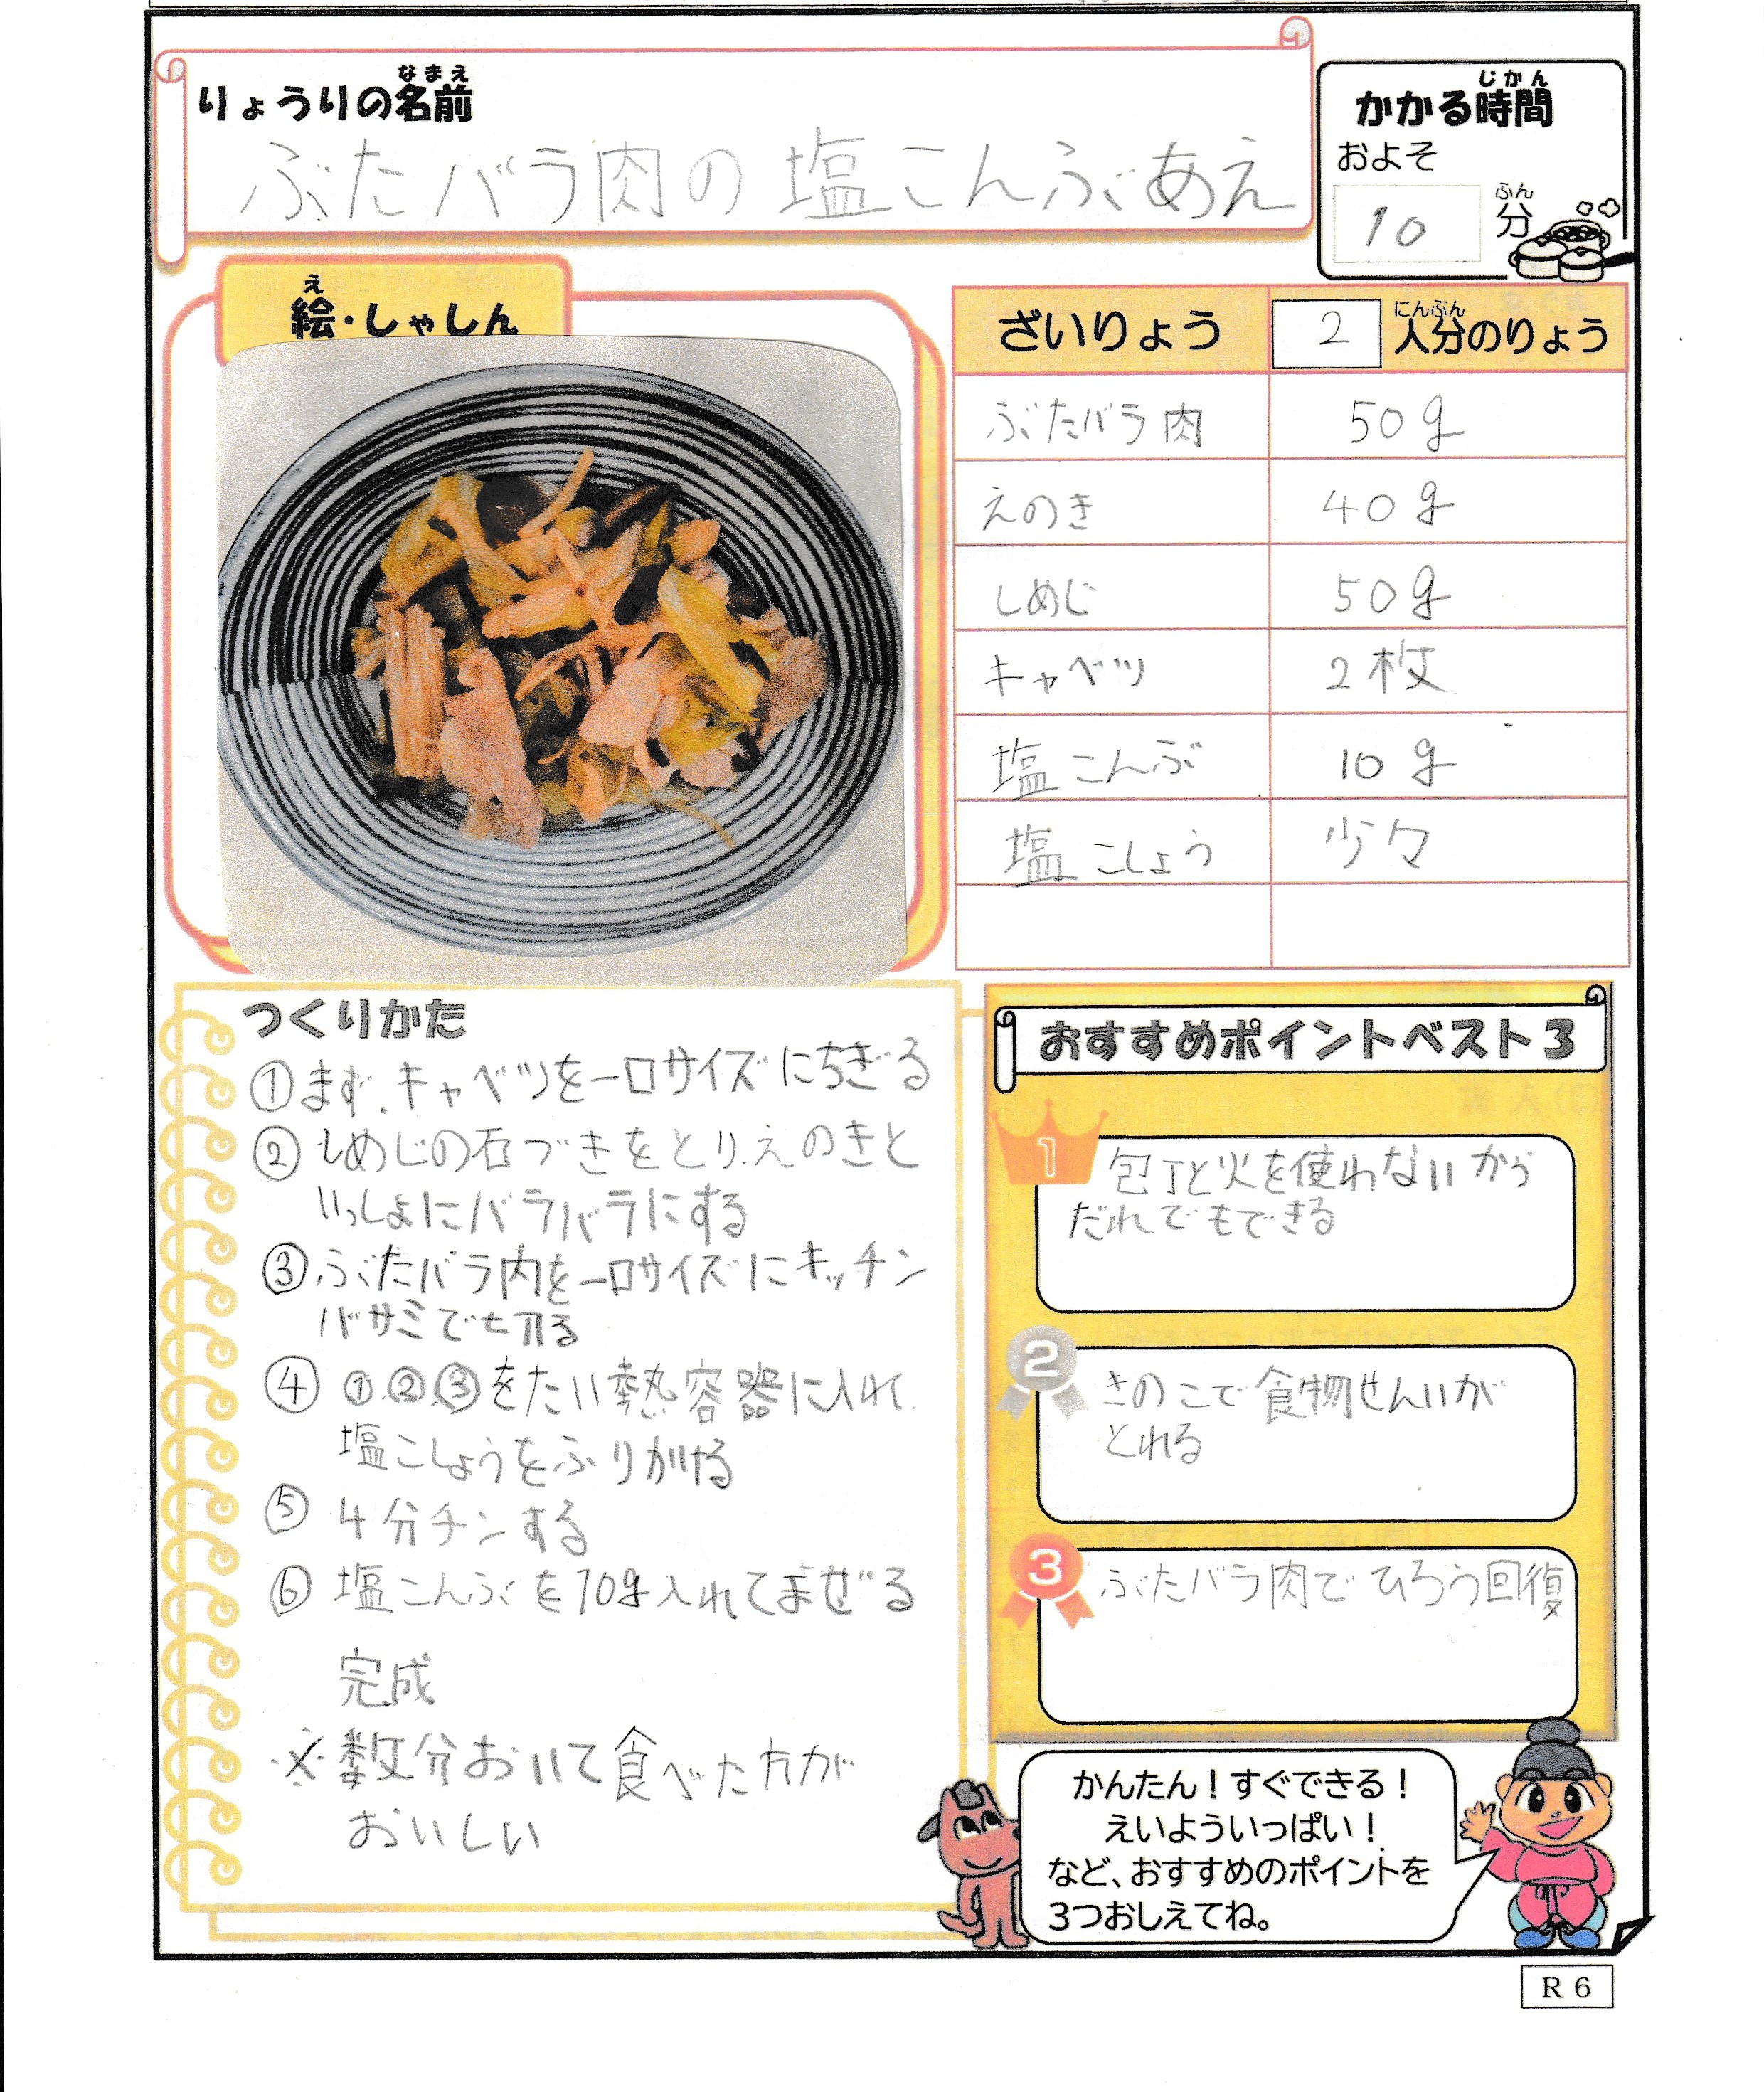 りょうりの名前
なまえ
ぶたバラ肉の塩こんぶあえ
かかる時間
じかん
およそ
10分
ふん
絵・しゃしん
え
ざいりょう 2人分のりょう
にんぶん
ぶたバラ肉 50g
えのき 40g
しめじ 50g
キャベツ 2枚
塩こんぶ 10g
塩こしょう 少々
つくりかた
①まず、キャベツを一口サイズにちぎる
②しめじの石づきをとり、えのきと
いっしょにバラバラにする
③ぶたバラ肉を一口サイズにキッチン
バサミで切る
④ ①②③をたい熱容器に入れ、
塩こしょうをふりかける
⑤ 4分チンする
⑥ 塩こんぶを10g入れてまぜる
完成
※数分おいて食べた方が
おいしい
おすすめポイントベスト3
1
包丁と火を使わないから
だれでもできる
2
きのこで食物せんいが
とれる
3
ぶたバラ肉でひろう回復
かんたん！すぐできる！
えいよういっぱい！
など、おすすめのポイントを
3つおしえてね。
R6